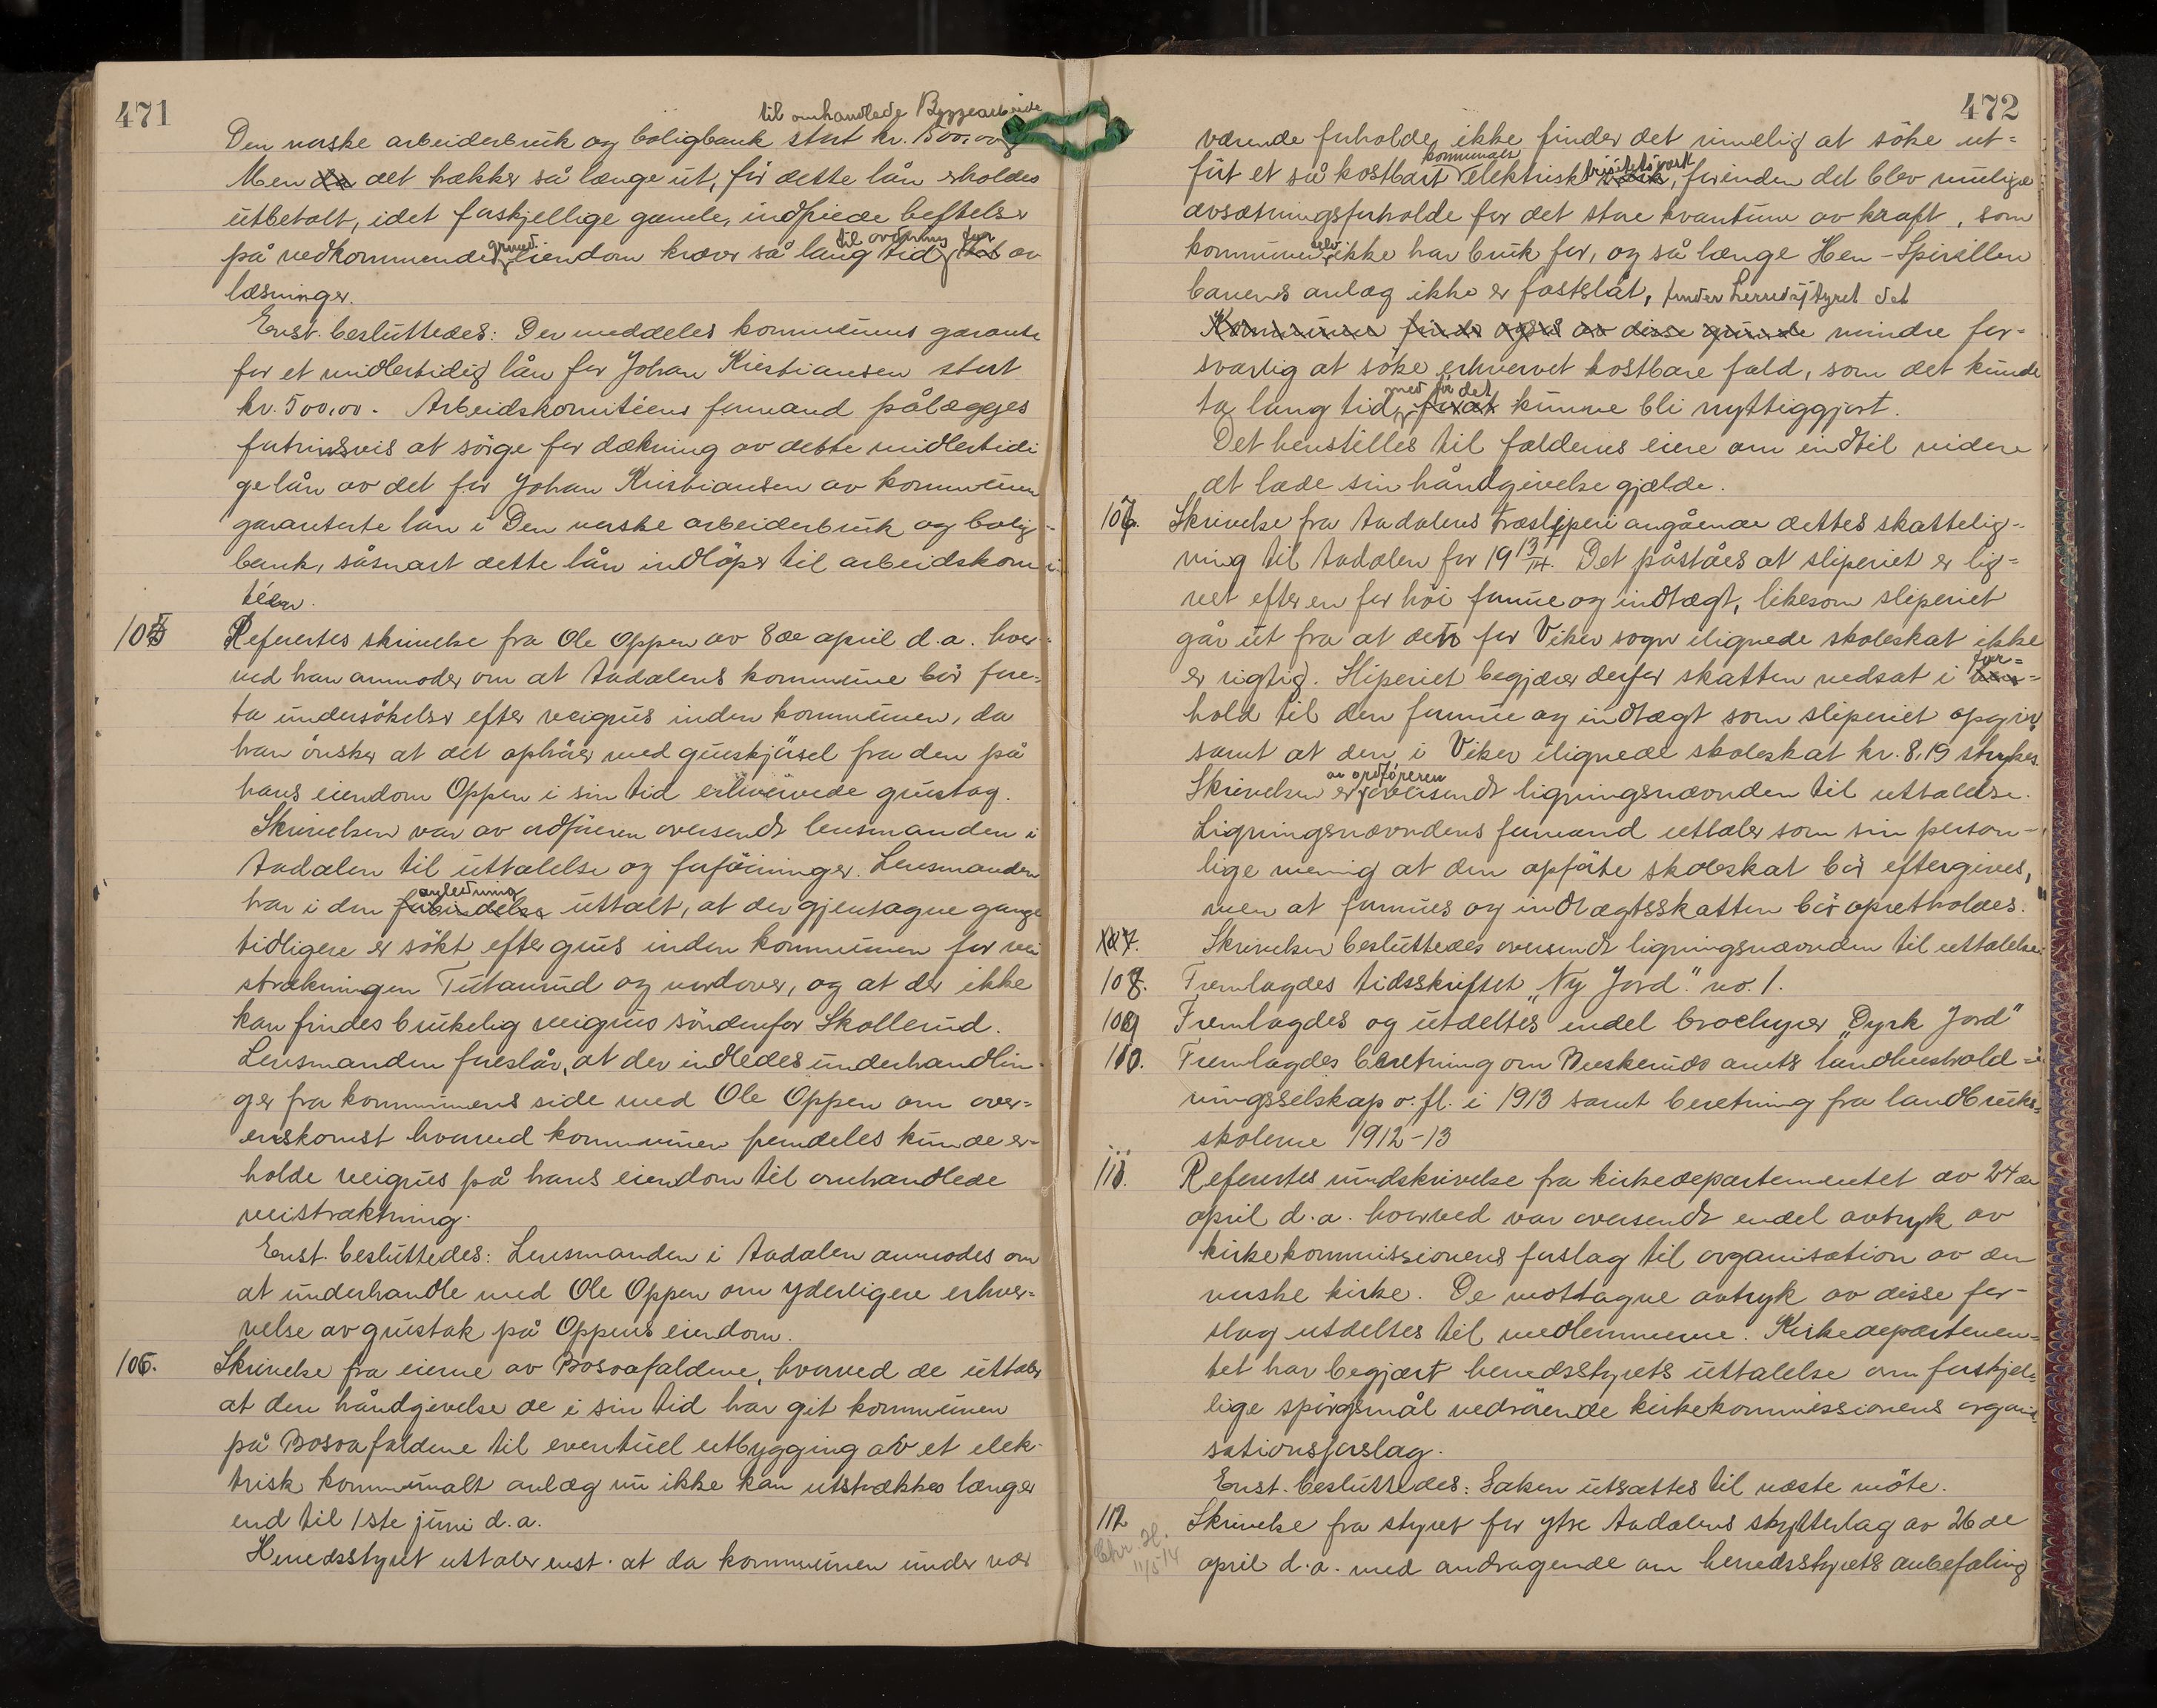 471
til omhandlede Byggearbeide
Den norske arbeiderbruk og boligbank stort kr. 1500,00
Men da det trækker så længe ut, før dette lån erholdes
utbetalt, idet forskjellige gamle, indfriede heftelser
på vedkommendes grund eiendom kræver så lang tid til ordning før av
læsninger.
Enst. besluttedes: Der meddeles kommunens garanti
for et midlertidig lån for Johan Kristiansen stort
kr. 500,00. Arbeidskomitéens formand pålægges
fortrinsvis at sörge for dækning av dette midlertidi
ge lån av det for Johan Kristiansen av kommunen
garanterte lån i Den norske arbeiderbruk og bolig-
bank, såsnart dette lån indlöper til arbeidskomi-
téen.
105 Refertes skrivelse fra Ole Oppen av 8de april d.a. hvor-
ved han anmoder om at Aadalens kommune bör fore-
ta undersökelser efter veigrus inden kommunen, da
han önsker at det ophörer med gruskjörsel fra den på
hans eiendom Oppen i sin tid erhvervede grustag.
Skrivelsen var av ordföreren oversendt lensmanden i
Aadalen til uttalelse og forföininger. Lensmanden
har i den anledning forbindelse uttalt, at der gjentagne gange
tidligere er sökt efter grus inden kommunen for vei
strækningen Tutanrud og nordover, og at der ikke
kan findes brukelig veigrus söndenfor Skollerud.
Lensmanden foreslår, at der indledes underhandlin-
ger fra kommunens side med Ole Oppen om over-
enskomst hvorved kommunen fremdeles kunde er-
holde veigrus på hans eiendom til omhandlede
veistrækning.
Enst. besluttedes: Lensmanden i Aadalen anmodes om
at underhandle med Ole Oppen om yderligere erhver-
velse av grustak på Oppens eiendom.
106. Skrivelse fra eierne av Bosoafaldene, hvorved de uttaler
at den håndgivelse de i sin tid har git kommunen
på Bosoafaldene til eventuel utbygging av et elek-
trisk kommunalt anlæg nu ikke kan utstrækkes længer
end til 1ste juni d.a.
Herredsstyret uttaler enst. at da kommunen under vær
472
værende forholde ikke finder det rimelig at söke ut-
fört et så kostbart kommunalt elektrisk verk, forinden det blev mulige
avsætningsforholde for det store kvantum av kraft, som
kommunen selv ikke har bruk for, og så længe Hen-Spirillen
banens anlæg ikke er fastslåt, finder herredsstyret det
Kommunen finder også av disse grunde mindre for-
svarlig at söke erhvervet kostbare fald, som det kunde
ta lang tid med för det forat kunne bli nyttiggjort.
Det henstilles til faldenes eiere om indtil videre
at lade sin håndgivelse gjælde.
107. Skrivelse fra Aadalens Træsliperi angående dettes skattelig-
ning til Aadalen for 1913/14. Det påståes at sliperiet er lig-
net efter en for höi formue og indtægt, likesom sliperiet
går ut fra at den for Viker sogn ilignede skoleskat ikke
er rigtig. Sliperiet begjærer derfor skatten nedsat i for-
hold til den formue og indtægt som sliperiet opgir,
samt at den i Viker ilignede skoleskat kr. 8,19 strykes.
Skrivelsen er av ordföreren oversendt ligningsnævnden til uttalelse.
Ligningsnævndens formand uttaler som sin person-
lige mening at den opförte skoleskat bör eftergives,
men at formues og indtægtsskatten bör opretholdes.
Skrivelsen besluttedes oversendt ligningsnævnden til uttalelse.
108. Fremlagdes tidsskriftet „Ny Jord" no. 1.
109 Fremlagdes og utdeltes endel brochyrer „Dyrk Jord"
110. Fremlagdes beretning om Buskeruds amts landhushold-
ningsselskap o. fl. i 1913 samt beretning fra landbruks-
skolerne 1912-13
111. Refertes rundskrivelse fra kirkedepartementet av 24de
april d.a. hvorved var oversendt endel avtryk av
kirkekommissionens forslag til organisation av den
norske kirke. De mottagne avtryk av disse for-
slag utdeltes til medlemmerne. Kirkedepartemen-
tet har begjært herredsstyrets uttalelse om forskjel-
lige spörgsmål vedrörende kirkekommissionens organi-
sationsforslag.
Enst. besluttedes: Saken utsættes til næste möte.
112 Skrivelse fra styret for ytre Aadalens skytterlag av 26de
Chr. H.
11/5 14
april d.a. med andragende om herredsstyrets anbefaling